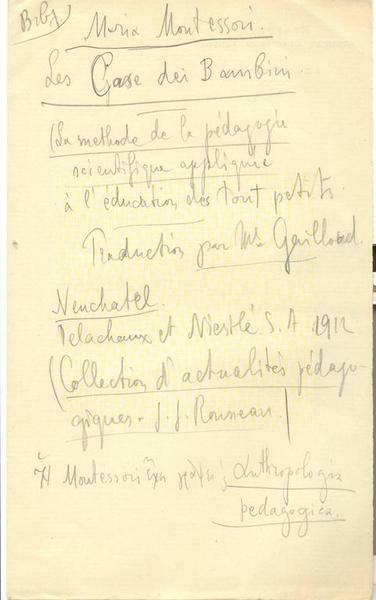 Bibl
Maria Montessori.
Les Case dei Bambini
(La methode de la pédagogie
scientifique appliquée
à l'éducation des tout petits.
Traduction par Me Gailloud.
Neuchatel.
Delachaux et Niestlé S. A 1912
(Collection d'actualités pédago-
giques. J. J. Rousseau.)
Ἡ Montessori ἔχει γράψει; Anthropologia
pedagogica.